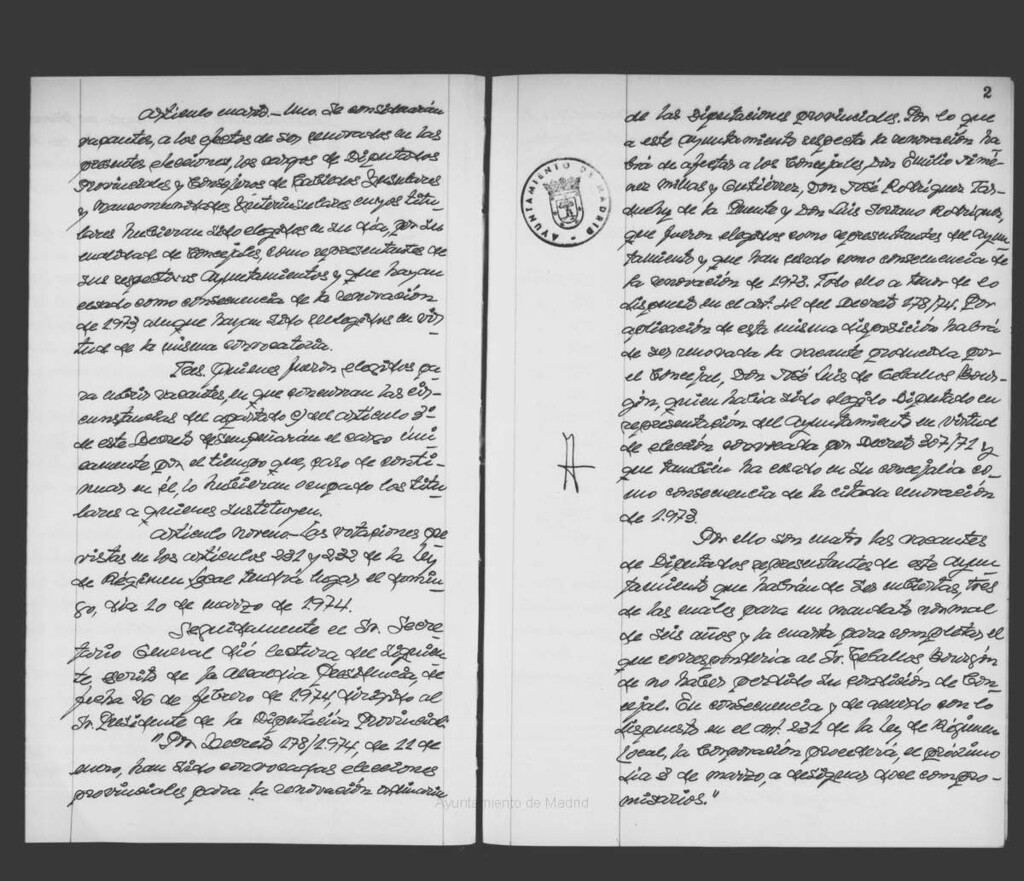 Artículo cuarto.- Uno. Se considerarán
vacantes, a los efectos de ser renovados en las
presentes elecciones, los cargos de Diputados
Provinciales y Consejeros de Cabildos Insulares
y Mancomunidades Interinsulares cuyos titu-
lares hubieran sido elegidos en su día, por su
cualidad de Concejales, como representantes de
sus respectivos Ayuntamientos y que hayan
cesado como consecuencia de la renovación
de 1973, aunque hayan sido reelegidos en vir-
tud de la misma convocatoria.
Tres. Quienes fueron elegidos pa-
ra cubrir vacantes, en que concurran las cir-
cunstancias del apartado c) del artículo 3º
de este Decreto desempeñarán el cargo úni-
camente por el tiempo que, caso de conti-
nuar en él, lo hubieran ocupado los titu-
lares a quienes sustituyen.
Artículo noveno.- Las votaciones pre-
vistas en los artículos 231 y 232 de la Ley
de Régimen Local tendrá lugar el domin-
go, día 10 de marzo de 1974.
Seguidamente el Sr. Secre-
tario General dió lectura del siguien-
te escrito de la Alcaldía Presidencia, de
fecha 26 de febrero de 1.974, dirigido al
Sr. Presidente de la Diputación Provincial:
"Por Decreto 178/1.974, de 11 de
enero, han sido convocadas elecciones
provinciales para la renovación ordinaria
2
de las Diputaciones provinciales. Por lo que
a este Ayuntamiento respecta la renovación ha-
brá de afectar a los Concejales, Don Emilio Jimé-
nez Millas y Gutiérrez, Don José Rodríguez Tar-
duchy de la Puente y Don Luis Soriano Rodríguez,
que fueron elegidos como representantes del Ayun-
tamiento y que han cesado como consecuencia de
la renovación de 1973. Todo ello a tenor de lo
dispuesto en el art. 4º del Decreto 178/74. Por
aplicación de esta misma disposición habrá
de ser renovada la vacante producida por
el Concejal, Don José Luis de Ceballos Bour-
gón, quien había sido elegido Diputado en
representación del Ayuntamiento en virtud
de elección convocada por Decreto 307/71 y
que también ha cesado en su concejalía co-
mo consecuencia de la citada renovación
de 1.973.
Por ello son cuatro las vacantes
de Diputados representantes de este Ayun-
tamiento que habrán de ser cubiertas, tres
de las cuales para un mandato normal
de seis años y la cuarta para completar el
que correspondería al Sr. Ceballos Bourgón
de no haber perdido su condición de Con-
cejal. En consecuencia y de acuerdo con lo
dispuesto en el art. 231 de la Ley de Régimen
Local, la Corporación procederá, el próximo
día 3 de marzo, a designar doce compro-
misarios."
AYUNTAMIENTO DE MADRID
Ayuntamiento de Madrid